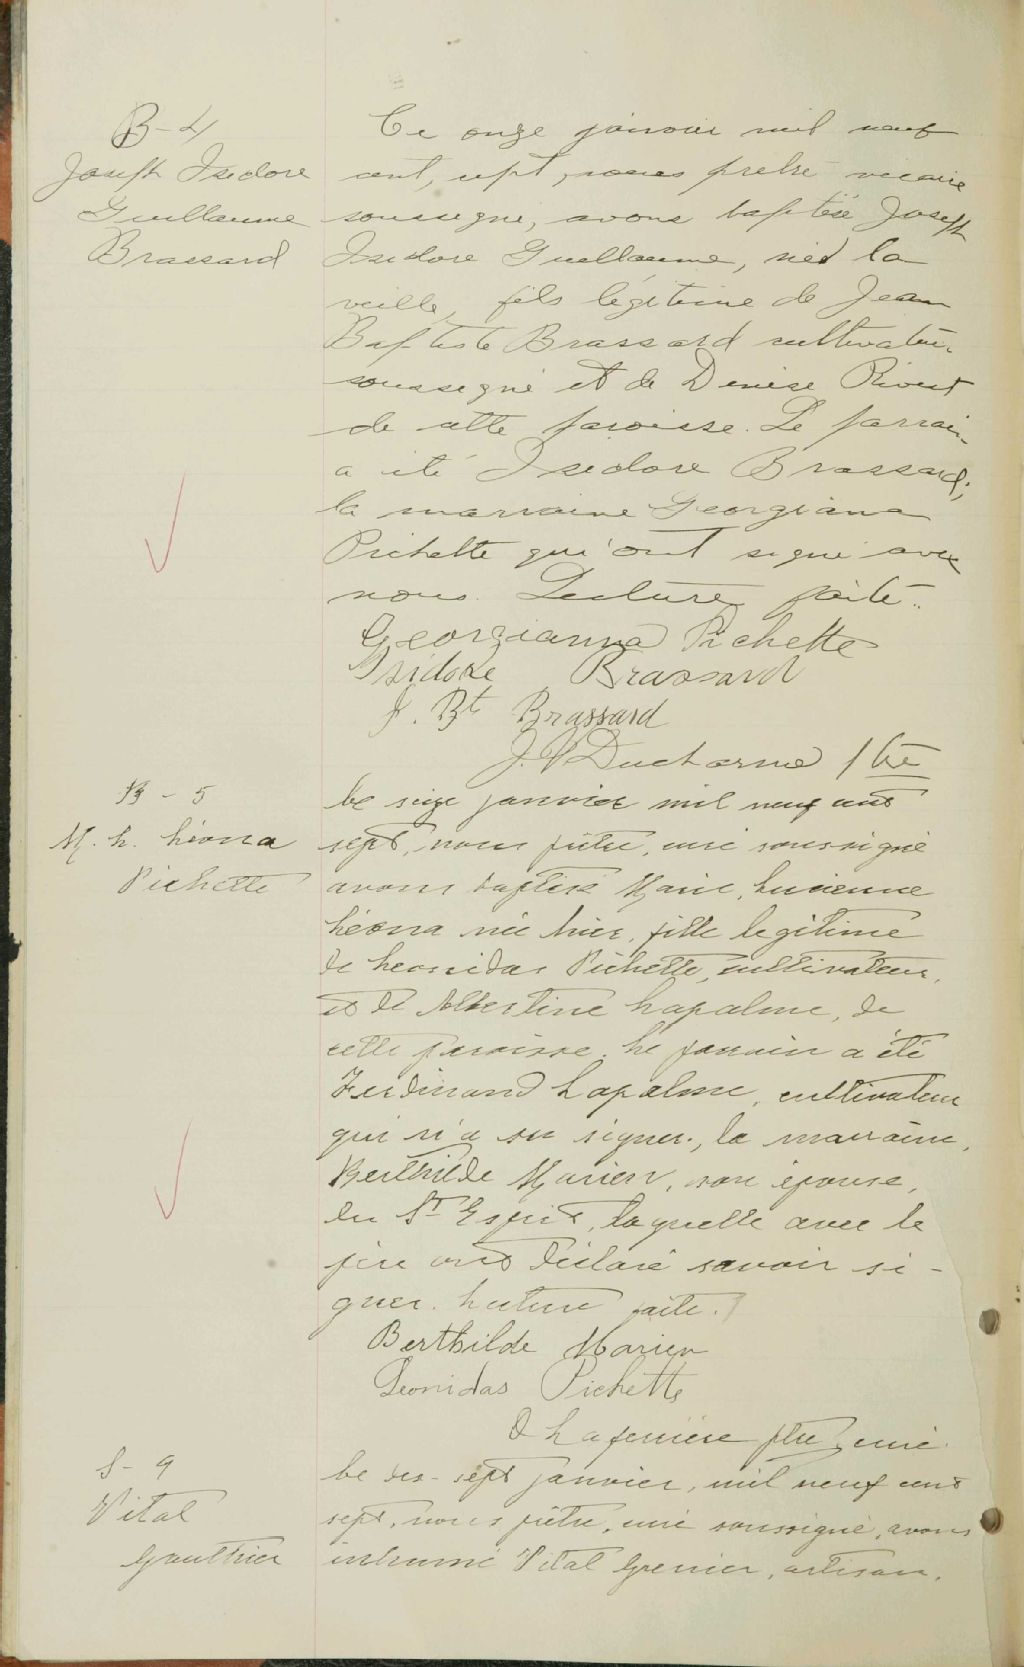 B-4
Joseph Isidore
Guillaume
Brassard
Ce onze janvier mil neuf
cent, sept, nous prêtre vicaire
soussigné, avons baptisé Joseph
Isidore Guillaume, né la
veille, fils légitime de Jean
Baptiste Brassard cultivateur
soussigné et de Denise Rivest
de cette paroisse. Le parrain
a été Isidore Brassard;
la marraine Georgiana
Pichette qui ont signé avec
nous. Lecture faite.
Georgianna Pichette
Isidore Brassard
J. Bte Brassard
J. V Ducharme Ptre
B - 5
M. L. Léona
Pichette
Le seize janvier mil neuf cent
sept, nous prêtre, curé soussigné
avons baptisé Marie, Lucienne
Léona née hier, fille légitime
de Léonidas Pichette, cultivateur,
et de Albertine Lapalme, de
cette paroisse. Le parrain a été
Ferdinand Lapalme, cultivateur
qui n'a su signer, la marraine,
Berthilde Marien, son épouse,
du St Esprit, laquelle avec le
père ont déclaré savoir si-
gner. Lecture faite.
Berthilde Marien
Leonidas Pichette
Laferrière ptre, curé.
S - 9
Vital
Gauthier
Le dix-sept janvier, mil neuf cent
sept, nous prêtre, curé soussigné, avons
inhumé Vital Grenier, artisan,